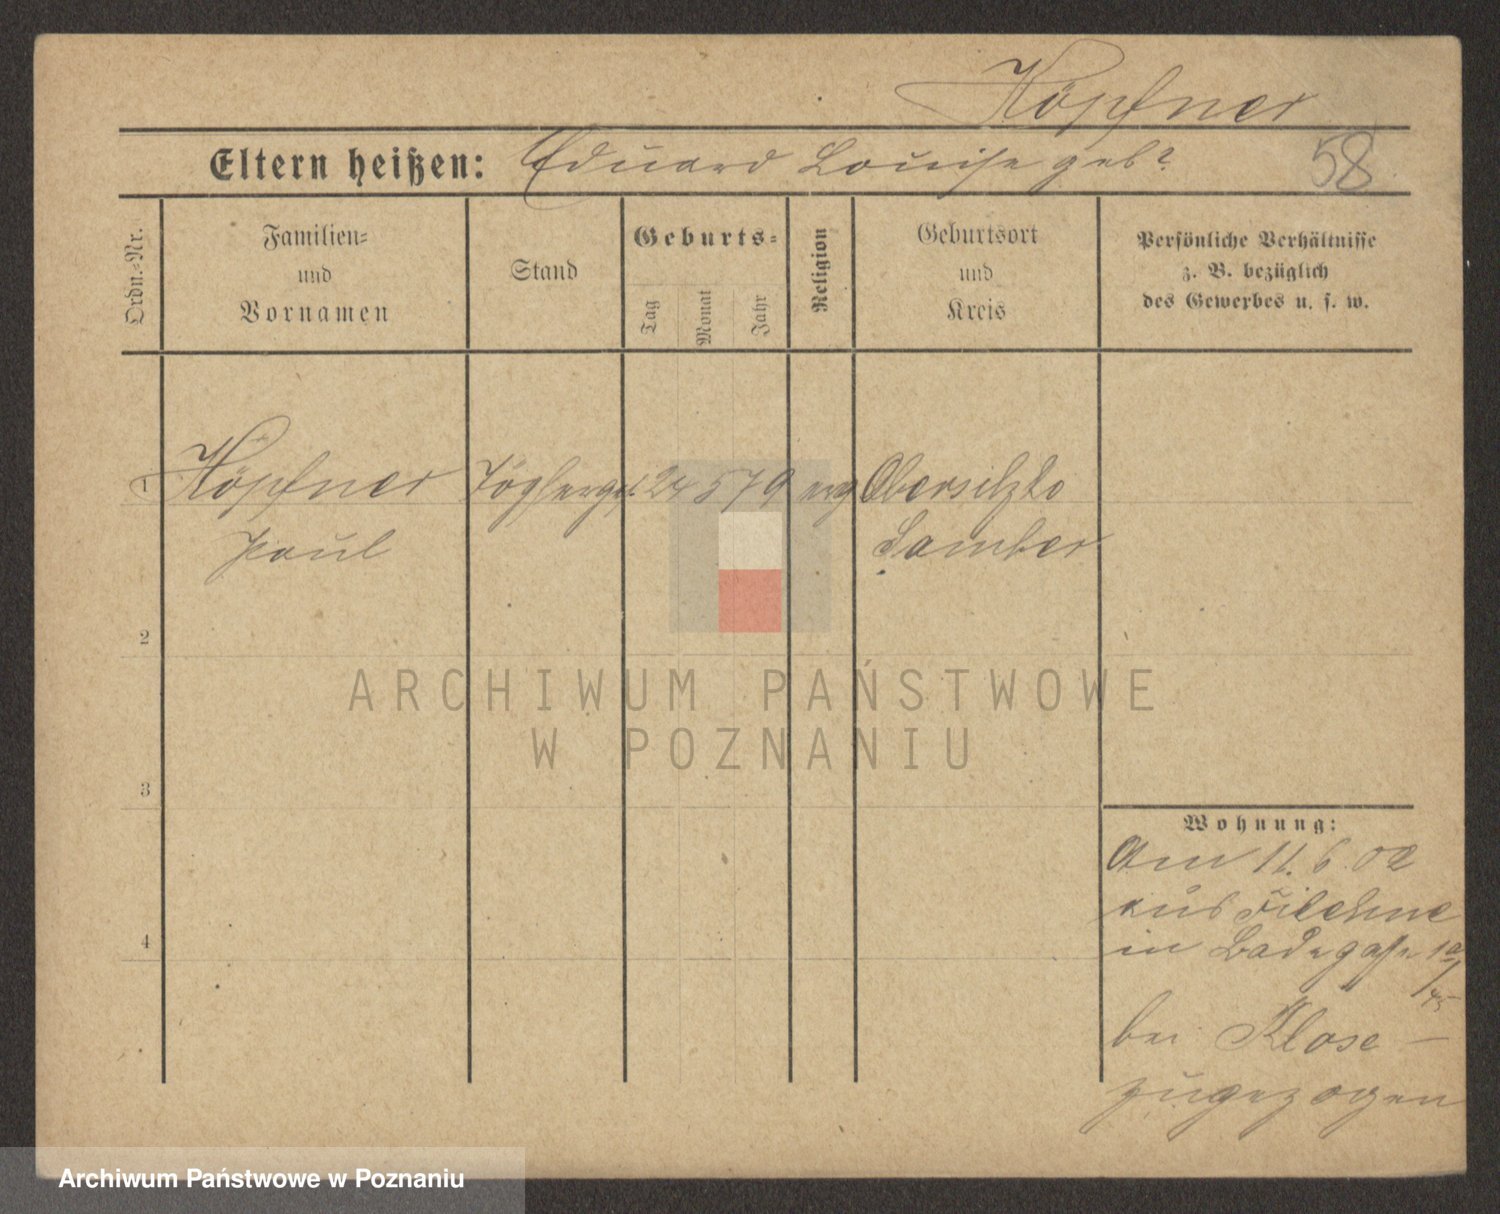 Köpfner
Eltern heißen: Eduard Louise geb?
58
Ordn.-Nr.
Familien-
und
Vornamen
Stand
Geburts-
Tag
Monat
Jahr
Religion
Geburtsort
und
Kreis
Persönliche Verhältnisse
z. B. bezüglich
des Gewerbes u. s. w.
1 Köpfner 24 5 79 evg Obersitzko
Paul Samter
2
ARCHIWUM PAŃSTWOWE
W POZNANIU
3
4
Wohnung:
Am 11. 6. 02
aus Filehne
in Badegasse
bei Klose
zugezogen
Archiwum Państwowe w Poznaniu